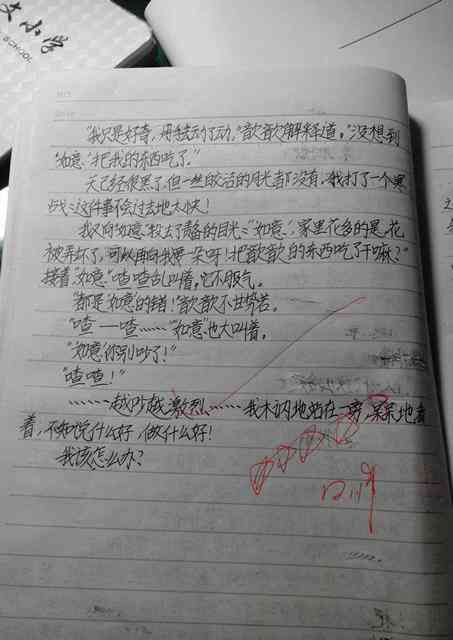 文小学
SCHOOL
"我只是好奇，用手去动了动。"歆歆解释道。"没想到
"如意"把我的东西吃了。"
天已经很黑了，但一丝皎洁的月光都没有，我打了个寒
战：这件事不会过去地太快！
我又向"如意"投去了责备的目光："如意"，家里花多的是，花
被弄坏了，可以再向我要一朵呀！把歆歆的东西吃了干嘛？"
接着"如意"喳喳乱叫着，它不服气。
"都是如意的错！"歆歆不甘势若。
"喳——喳……"如意"也大叫着。
"如意你别吵了！"
"喳喳！"
……越吵越激烈……我木讷地站在一旁，呆呆地看
着，不知说什么好，做什么好！
我该怎么办？